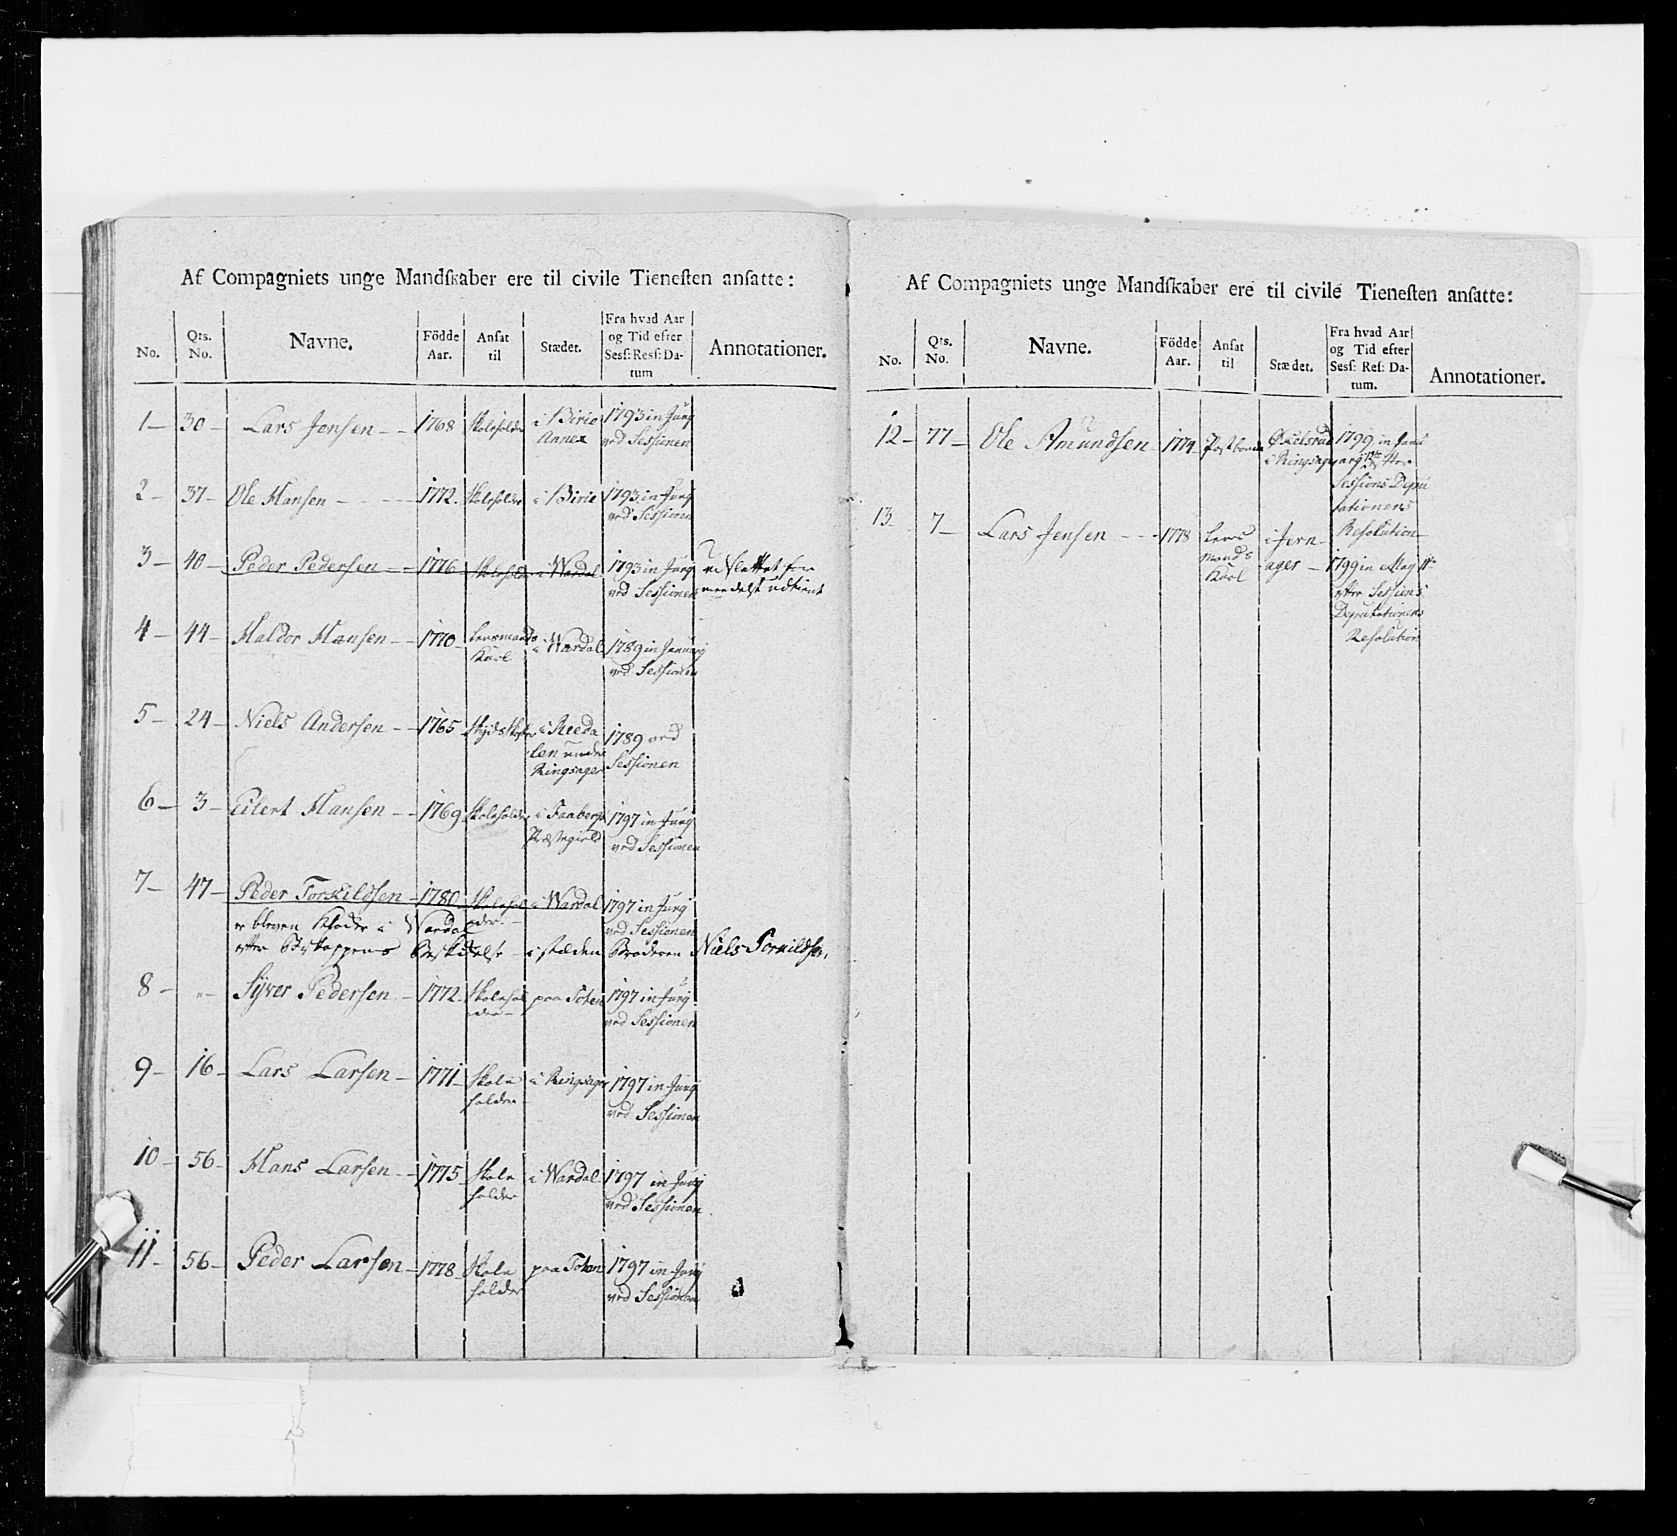 Af Compagniets unge Mandſkaber ere til civile Tieneſten anſatte:
No. Qts. No. Navne. Födde Aar. Anſat til Stædet. Fra hvad Aar og Tid efter Sesſ: Resſ: Datum Annotationer.
1— 30— Lars Jensen — — 1768 Skoleholder i Birie 1793 in Junÿ
Annex ved Sessionen
2— 37— Ole Hansen — — — 1772. Skoleholder i Birie 1793 in Junÿ
ved Sessionen
3— 40— Peder Pedersen — — 1776 Skoleholder i Wardal 1793 in Junÿ udslettet for
ved Sessionen meedelst udtient
4— 44— Haldor Hansen — — 1770 Lensmands i Wardal 1789 in Januarÿ
Karl ved Sessionen
5— 24— Niels Andersen — — 1765 i Reeda 1789 ved
len under Sessionen
Ringsager
6— 3— Eilert Hansen — — 1769 Skoleholder i Faaberg 1797 in Junÿ
Præstegield ved Sessionen
7— 47— Peder Torkildsen — 1780 Skolehol i Wardal 1797 in Junÿ
er bleven i Wardal der — ved Sessionen
efter Biskoppens i stæden Broderen Niels Torkildsen,
8— „— Syver Pedersen — 1772. Skolehol paa Toten 1797 in Junÿ
der — ved Sessionen
9— 16— Lars Larsen — 1771— Skole i Ringsager 1797 in Junÿ
holder — ved Sessionen
10— 56— Hans Larsen — 1775 Skole i Wardal 1797 in Junÿ
holder ved Sessionen
11— 56— Peder Larsen — 1778 Skole paa Toten 1797 in Junÿ
holder ved Sessionen
Af Compagniets unge Mandſkaber ere til civile Tieneſten anſatte:
No. Qts. No. Navne. Födde Aar. Anſat til Stædet. Fra hvad Aar og Tid efter Sesſ: Reſ: Datum. Annotationer.
12— 77— Ole Amundsen 1774 Postbonde 1799 in Janu
i Ringsager arÿ efter
Sessions Depu
tationens
Resolution
13— 7— Lars Jensen — — 1778 Lens i Jern
mands ager — 1799 in Maÿ
Karl efter Sessions
Deputationens
Resolution